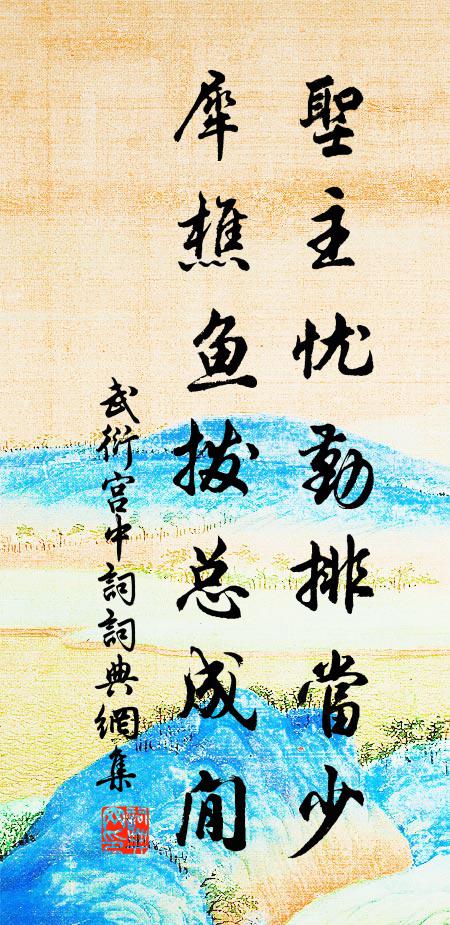 聖主忧勤排當少
犀樵鱼拨总成閒
武衍宫中詞詞典網集